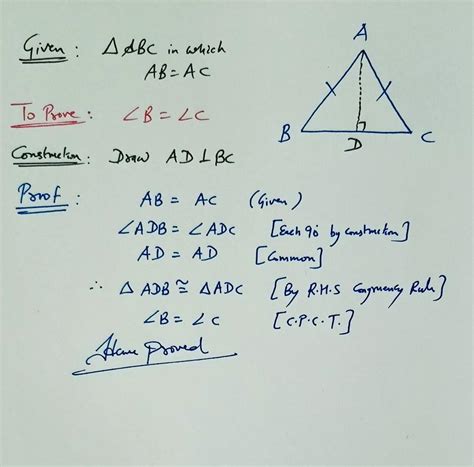 Given : △ABC in which
AB = AC
To Prove : ∠B = ∠C
Construction : Draw AD ⊥ BC
Proof :
AB = AC (Given)
∠ADB = ∠ADC [Each 90° by construction]
AD = AD [Common]
∴ △ADB ≅ △ADC [By R.H.S Congruency Rule]
∠B = ∠C [C.P.C.T.]
Hence proved
A
B
D
C